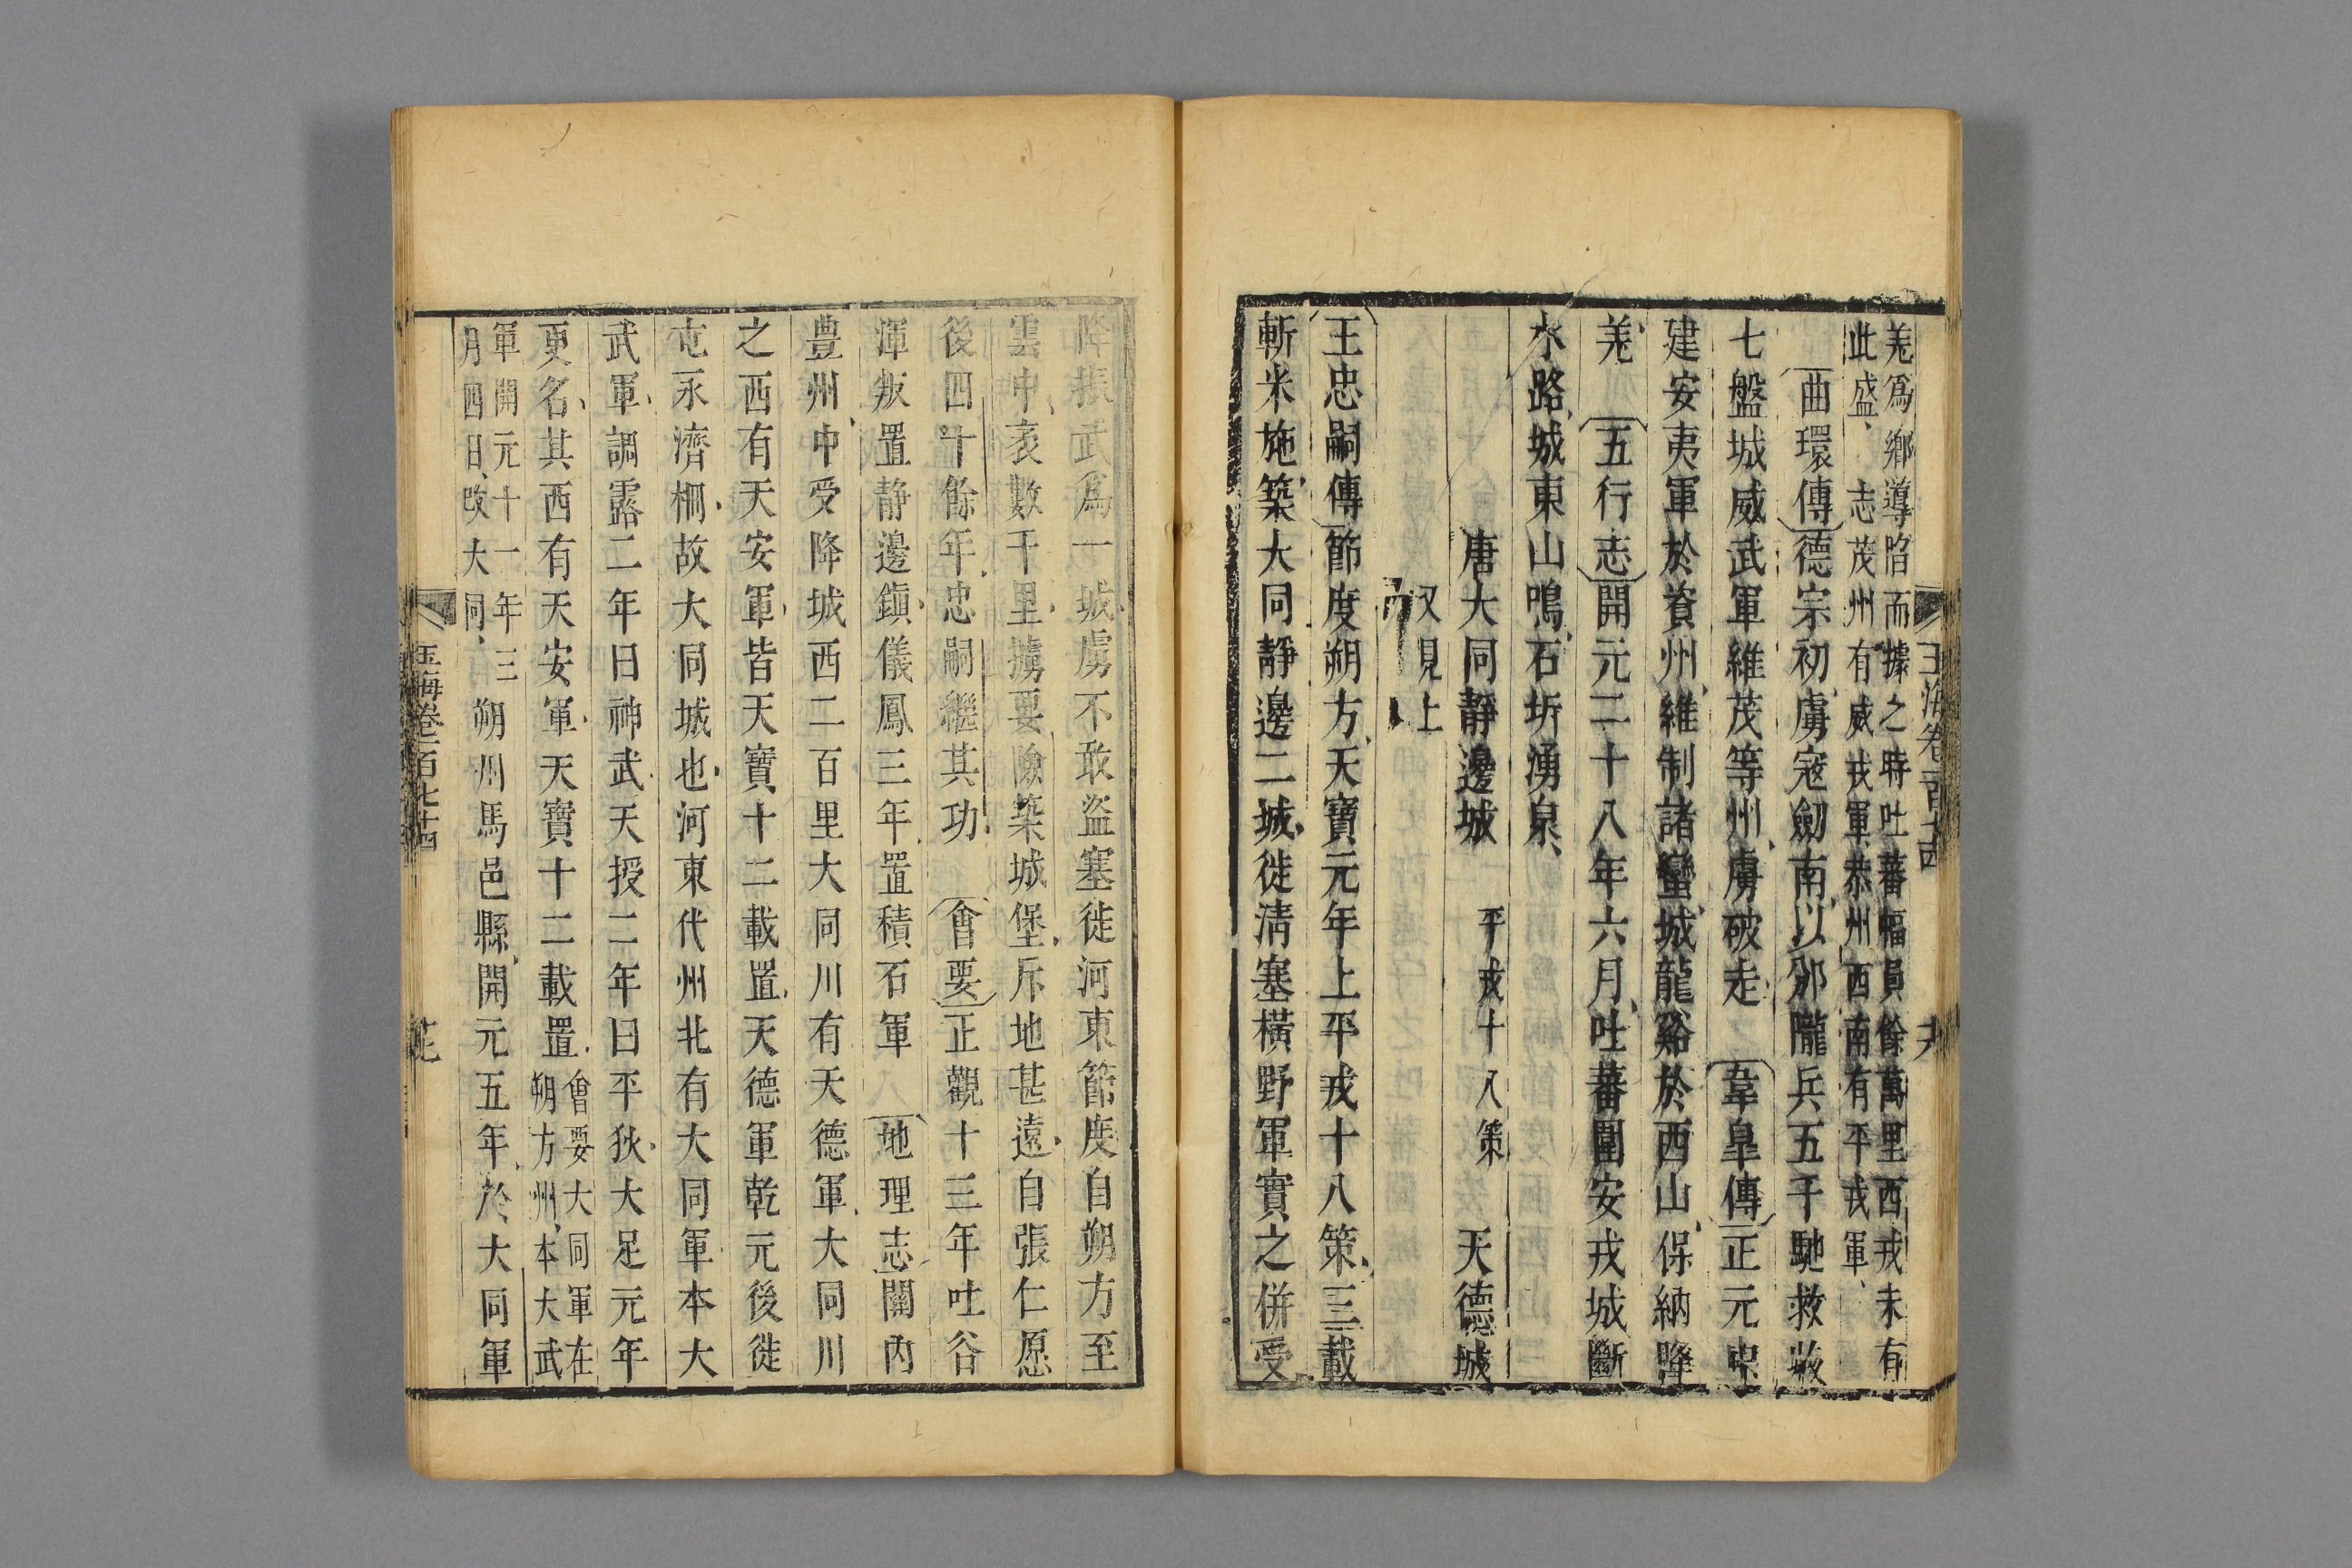 羌爲鄉導陷而據之時吐蕃幅員餘萬里西戎未有
此盛、志茂州有威戎軍恭州西南有平戎軍、
曲環傳德宗初虜寇劒南以邠隴兵五千馳救收
七盤城威武軍維茂等州虜破走 韋皐傳正元中
建安夷軍於資州維制諸蠻城龍谿於西山保納降
羌 五行志開元二十八年六月吐蕃圍安戎城斷
水路城東山鳴石坼湧泉、
唐大同靜邊城 平戎十八策 天德城
又見上
王忠嗣傳節度朔方天寶元年上平戎十八策三載
斬米施築大同靜邊二城徙清塞橫野軍實之併受
降振武爲一城虜不敢盜塞徙河東節度自朔方至
雲中袤數千里據要險築城堡斥地甚遠自張仁愿
後四十餘年忠嗣繼其功 會要正觀十三年吐谷
渾叛置静邊鎭儀鳳三年置積石軍 地理志關內
豊州中受降城西二百里大同川有天德軍大同川
之西有天安軍皆天寶十二載置天德軍乾元後徙
屯永濟柵故大同城也河東代州北有大同軍本大
武軍調露二年曰神武天授二年曰平狄大足元年
更名其西有天安軍天寶十二載置會要大同軍在
朔方州本大武
軍開元十一年三
月四日改大同、朔州馬邑縣開元五年於大同軍
玉海卷一百七十四